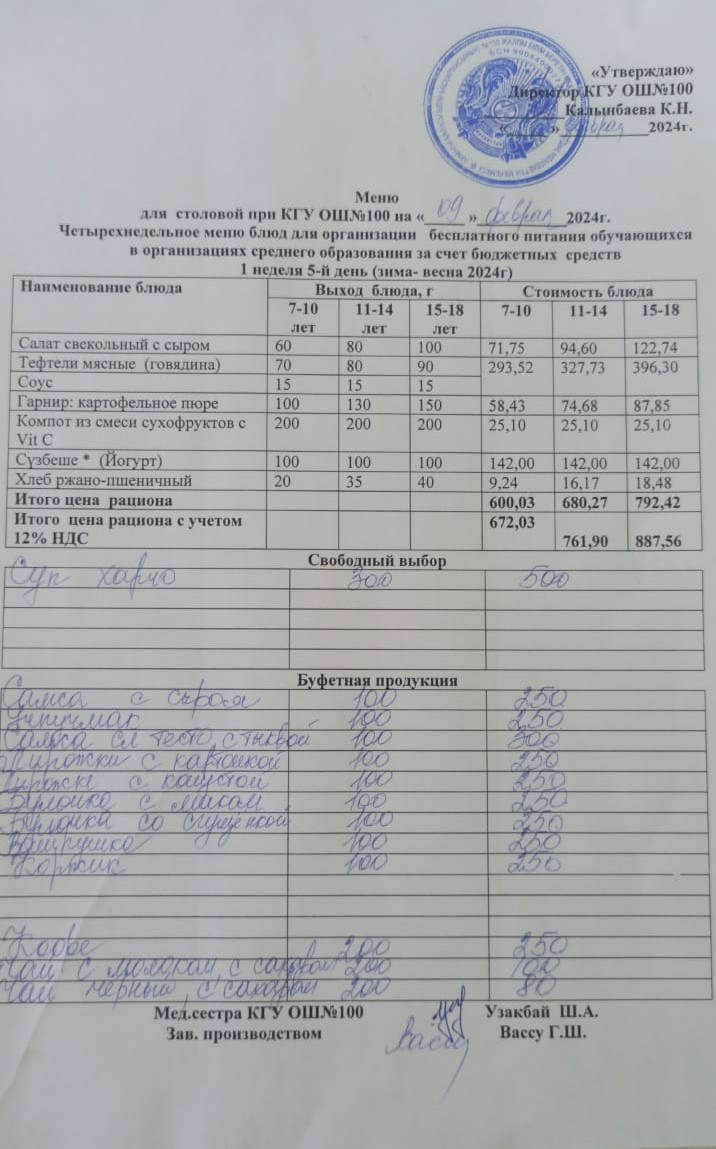 «Утверждаю»
Директор КГУ ОШ№100
Калынбаева К.Н.
«    » февраль 2024г.
Меню
для столовой при КГУ ОШ№100 на « 09 » февраль 2024г.
Четырехнедельное меню блюд для организации бесплатного питания обучающихся
в организациях среднего образования за счет бюджетных средств
1 неделя 5-й день (зима- весна 2024г)
Наименование блюда Выход блюда, г Стоимость блюда
7-10 лет 11-14 лет 15-18 лет 7-10 11-14 15-18
Салат свекольный с сыром 60 80 100 71,75 94,60 122,74
Тефтели мясные (говядина) 70 80 90 293,52 327,73 396,30
Соус 15 15 15
Гарнир: картофельное пюре 100 130 150 58,43 74,68 87,85
Компот из смеси сухофруктов с 200 200 200 25,10 25,10 25,10
Vit C
Сүзбеше * (Йогурт) 100 100 100 142,00 142,00 142,00
Хлеб ржано-пшеничный 20 35 40 9,24 16,17 18,48
Итого цена рациона 600,03 680,27 792,42
Итого цена рациона с учетом 672,03
12% НДС 761,90 887,56
Свободный выбор
Суп харчо 300 500
Буфетная продукция
Самса с сыром 100 250
Учпучмак 100 250
Самса сл тесто с тыквой 100 300
Пирожки с картошкой 100 250
Пирожки с капустой 100 250
Булочка с маком 100 250
Булочка со сгущенкой 100 250
Ватрушка 100 250
Коржик 100 250
Кофе 200 250
Чай с молоком, с сахаром 200 100
Чай черный, с сахаром 200 80
Мед.сестра КГУ ОШ№100 Узакбай Ш.А.
Зав. производством Вассу Вассу Г.Ш.